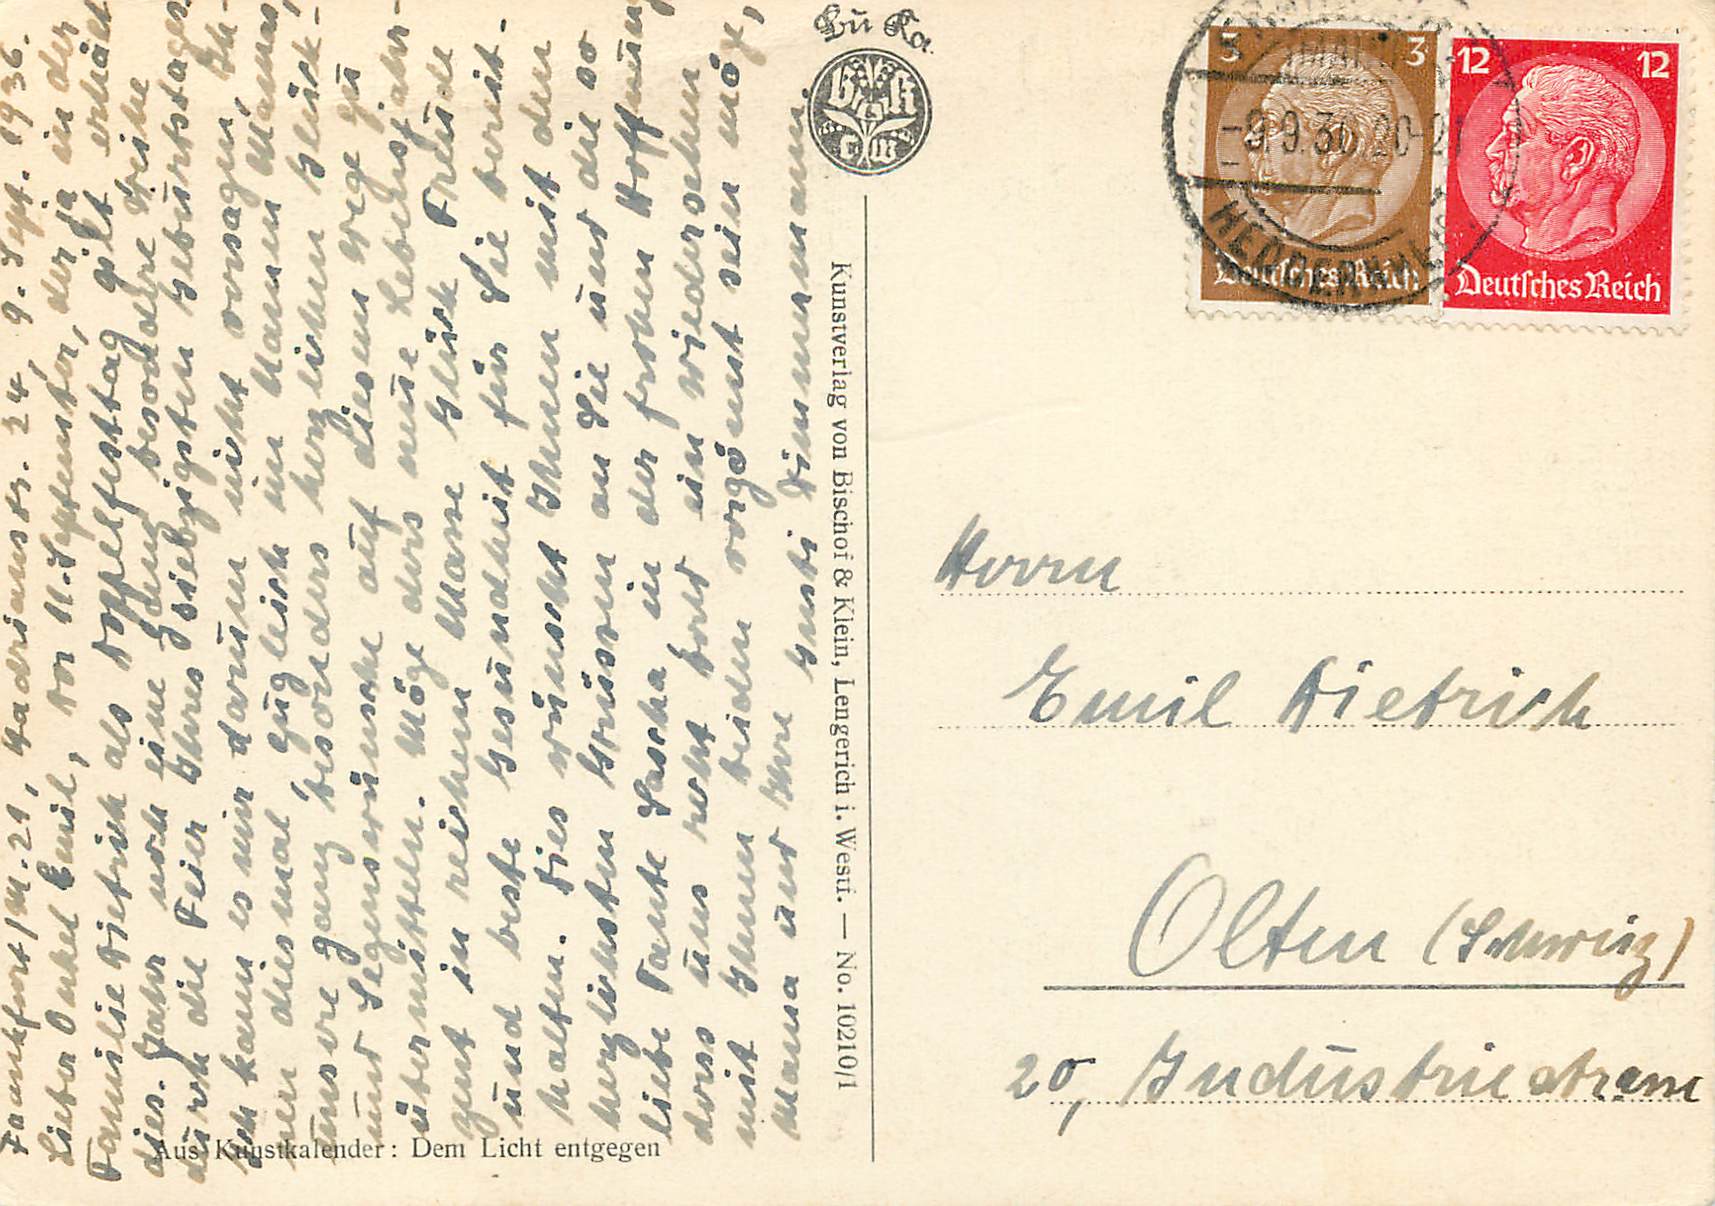 Frankfurt/M. 21, Hadrianstr. 24, 9. Sept. 1936.
Lieber Onkel Emil, Der 11. September, der ja in der
Familie Dietrich als Doppelfesttag gilt erhält
dies. Jahr noch eine ganz besondere Weihe
durch die Feier Ihres siebzigsten Geburtstages.
Ich kann es mir darum nicht versagen, Ih-
nen diesmal zugleich im Namen Mamas,
unsere ganz besonders herzlichen Glück-
und Segenswünsche auf diesem Wege zu
übermitteln. Möge das neue Lebensjahr
in reichem Masse Glück Freude
und beste Gesundheit für Sie bereit-
halten. Dies wünscht Ihnen mit den
herzlichsten Grüssen an Sie und die so
liebe Tante Sascha in der frohen Hoffnung
dass uns recht bald ein Wiedersehen
mit Ihnen beiden vergönnt sein mög,
Mama und Ihre Gusti Dimmermann.
Aus Kunstkalender: Dem Licht entgegen
BüKa
b k
Kunstverlag von Bischof & Klein, Lengerich i. Westf. — No. 10210/1
3 3
Deutsches Reich
12 12
Deutsches Reich
-9.9.36.20-21
HEDDERNHEIM
Herrn
Emil Dietrich
Olten (Schweiz)
20, Industriestrasse